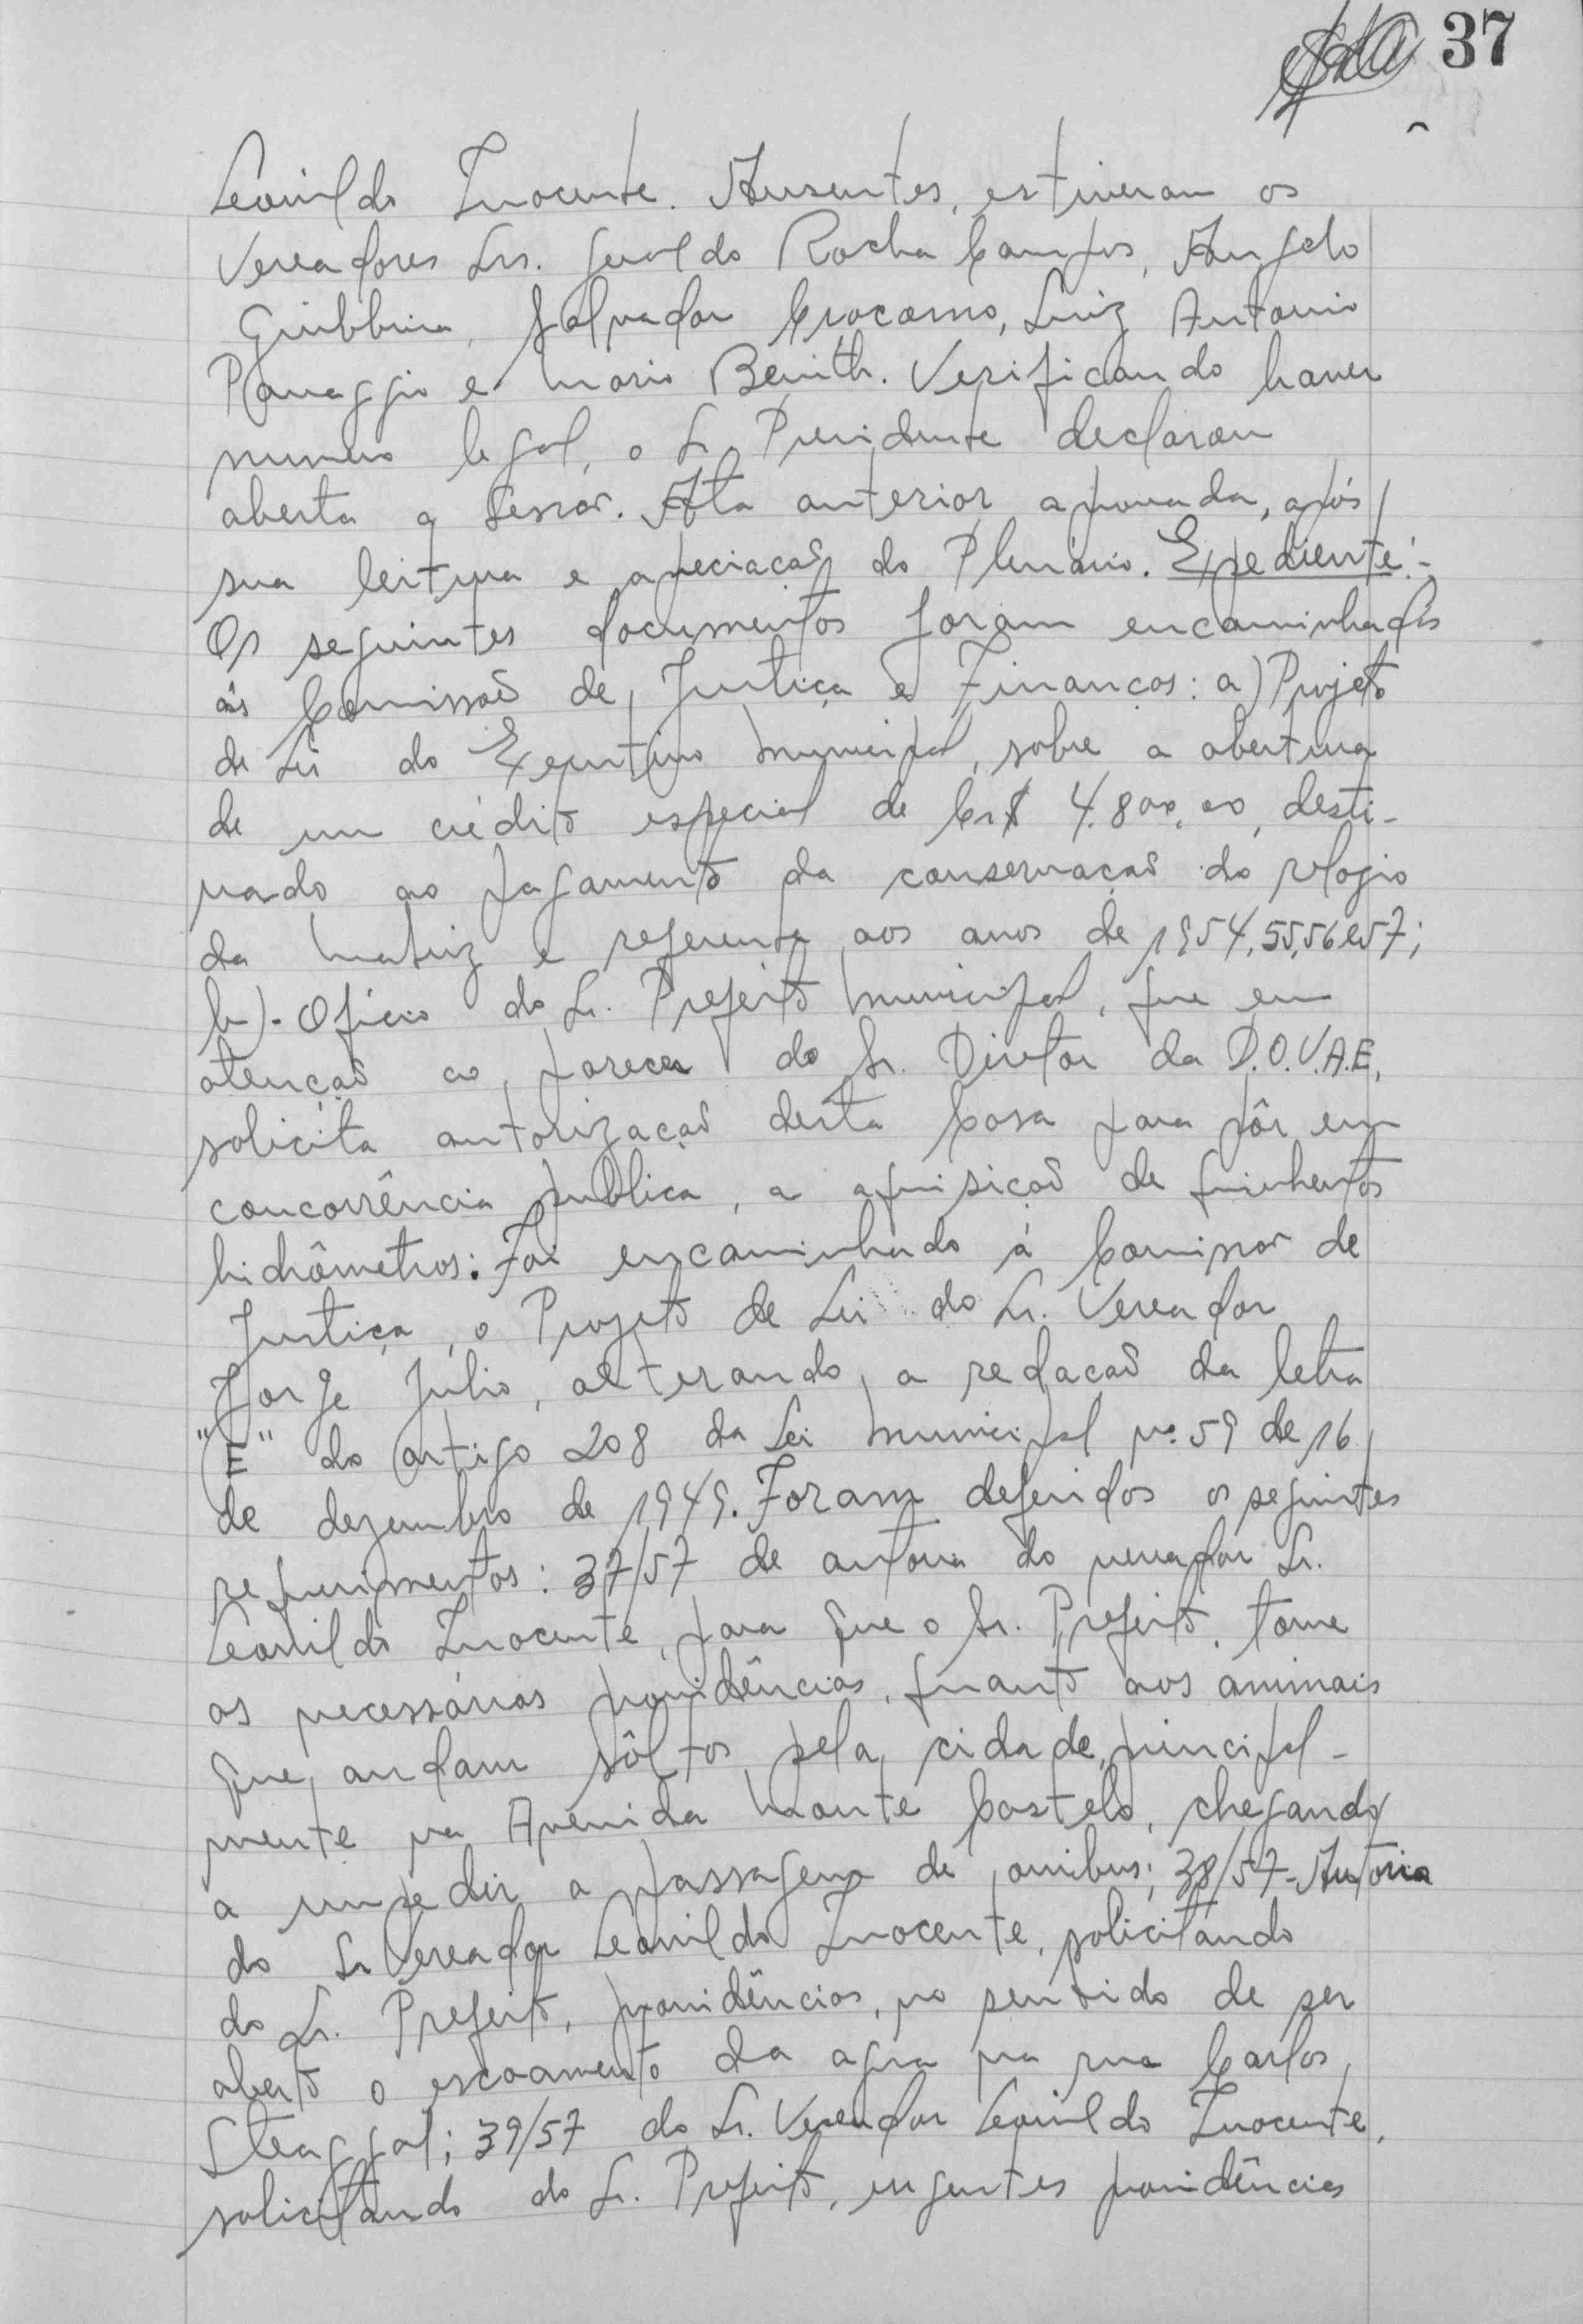 37
Leonildo Inocente. Ausentes, estiveram os
Vereadores Srs. Geraldo Rocha Campos, Angelo
Giubbina, Salvador Crocomo, Luiz Antonio
Panaggio e Mario Benith. Verificando haver
numero legal, o Sr. Presidente declarou
aberta a Sessão. Ata anterior aprovada, após
sua leitura e apreciação do Plenário. Expediente:-
Os seguintes documentos foram encaminhados
ás Comissão de Justiça e Finanças: a) Projeto
de Lei do Executivo Municipal, sobre a abertura
de um crédito especial de Cr$ 4.800,00, desti-
nado ao pagamento da conservação do relogio
da Matriz e referente aos anos de 1954,55,56 e 57;
b)- Oficio do Sr. Prefeito Municipal, que em
atenção ao parecer do Sr. Diretor da D.O.V.A.E,
solicita autorização desta Casa para pôr em
concorrência publica, a aquisição de quinhentos
hidrômetros: Foi encaminhado á Comissão de
Justiça, o Projeto de Lei do Sr. Vereador
Jorge Julio, alterando a redação da letra
"E" do artigo 208 da Lei Municipal nº 59 de 16
de dezembro de 1949. Foram deferidos os seguintes
requerimentos: 37/57 de autoria do vereador Sr.
Leonildo Inocente, para que o Sr. Prefeito, tome
as necessárias providências, quanto aos animais
que andam sôltos pela cidade, principal-
mente na Avenida Monte Castelo, chegando
a impedir a passagem de onibus; 38/57-Autoria
do Sr Vereador Leonildo Inocente, solicitando
do Sr. Prefeito, providências, no sentido de ser
aberto o escoamento da agua na rua Carlos
Steaggal; 39/57 do Sr. Vereador Leonildo Inocente,
solicitando do Sr. Prefeito, urgentes providências